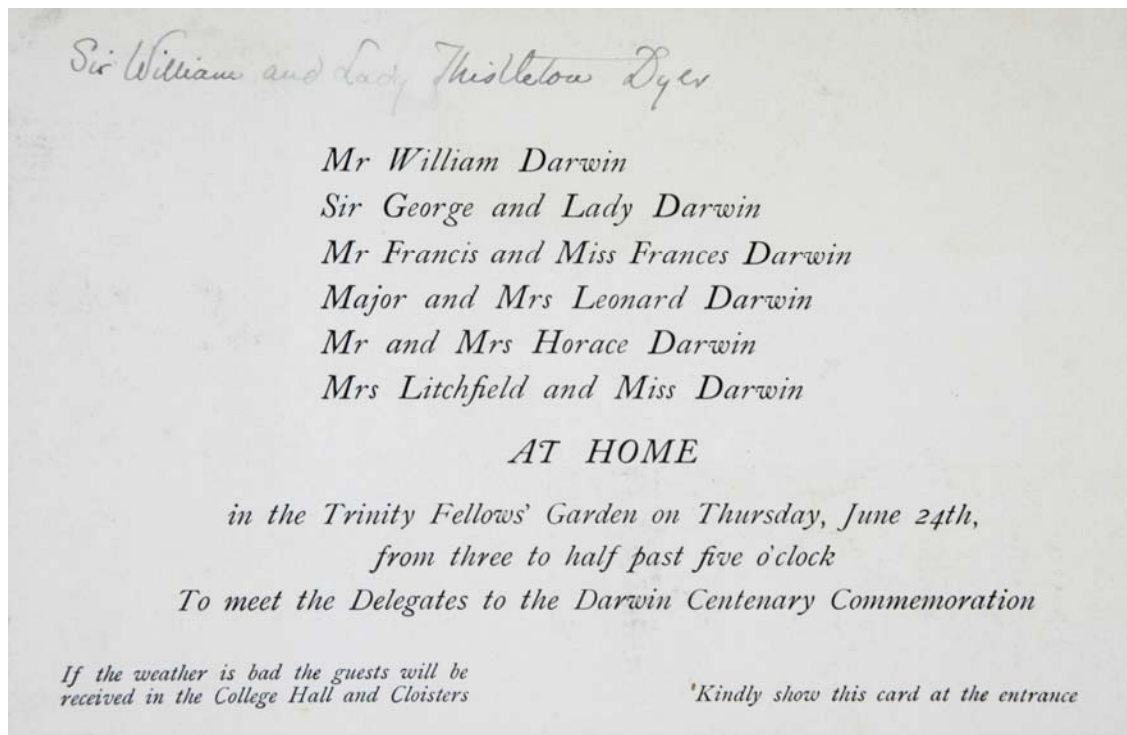 Sir William and Lady Thistleton Dyer
Mr William Darwin
Sir George and Lady Darwin
Mr Francis and Miss Frances Darwin
Major and Mrs Leonard Darwin
Mr and Mrs Horace Darwin
Mrs Litchfield and Miss Darwin
AT HOME
in the Trinity Fellows' Garden on Thursday, June 24th,
from three to half past five o'clock
To meet the Delegates to the Darwin Centenary Commemoration
If the weather is bad the guests will be
received in the College Hall and Cloisters
Kindly show this card at the entrance